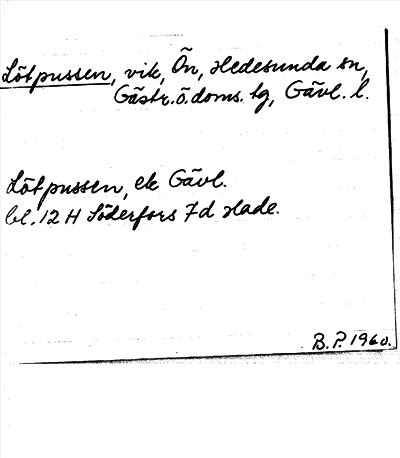 Lötpussen, vik, Ön, Hedesunda sn,
Gästr.ö.doms. tg, Gävl. l.
Lötpussen, ek Gävl.
bl. 12 H Söderfors 7d Hade.
B.P. 1960.